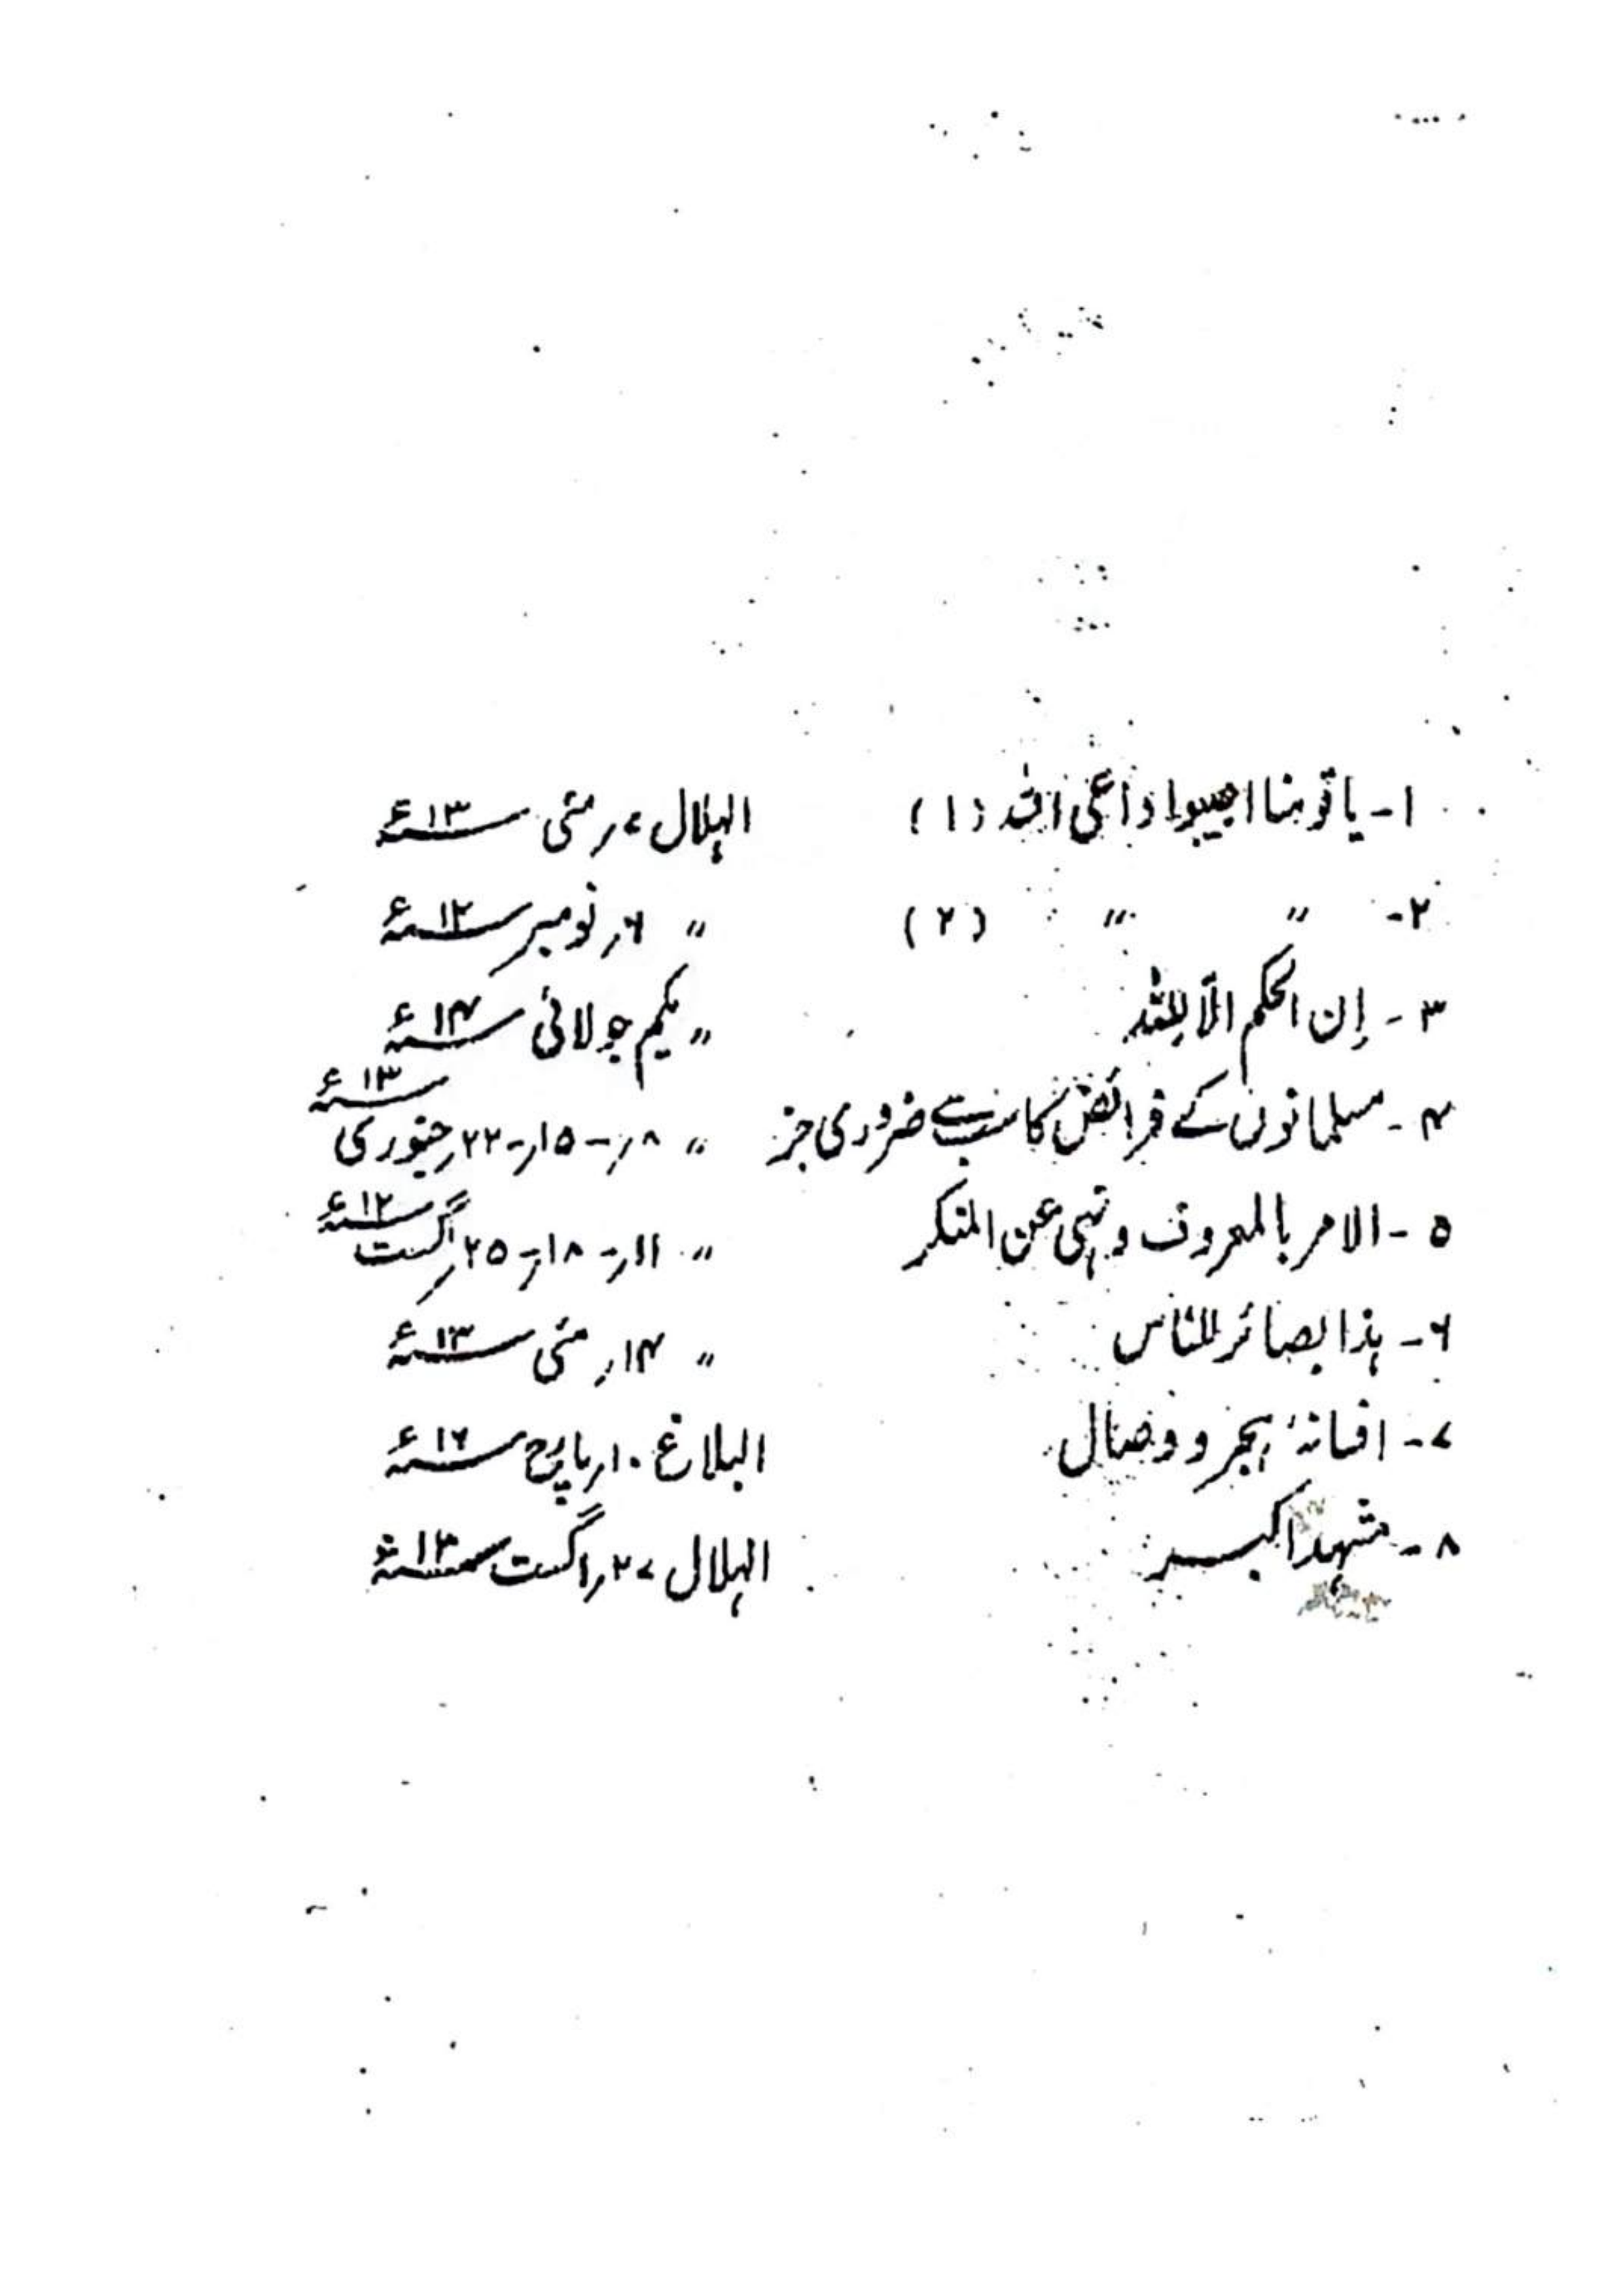 ۱- یا قومنا اجیبوا داعی اللہ (۱) الہلال ۷ر مئی ۱۳ء
۲- " " (۲) " ۶ر نومبر ۱۲ء
۳- إن الحکم الا للہ " یکم جولائی ۱۴ء
۴- مسلمانوں کے فرائض کا سب سے ضروری جز " ۸ر-۱۵ر-۲۲ر جنوری ۱۳ء
۵- الامر بالمعروف و نہی عن المنکر " ۱۱ر-۱۸ر-۲۵ر اگست ۱۲ء
۶- ہذا بصائر للناس " ۱۴ر مئی ۱۳ء
۷- افسانۂ ہجر و وصال البلاغ ۱۰ر مارچ ۱۶ء
۸- مشہد اکبر الہلال ۲۷ر اگست ۱۳ء